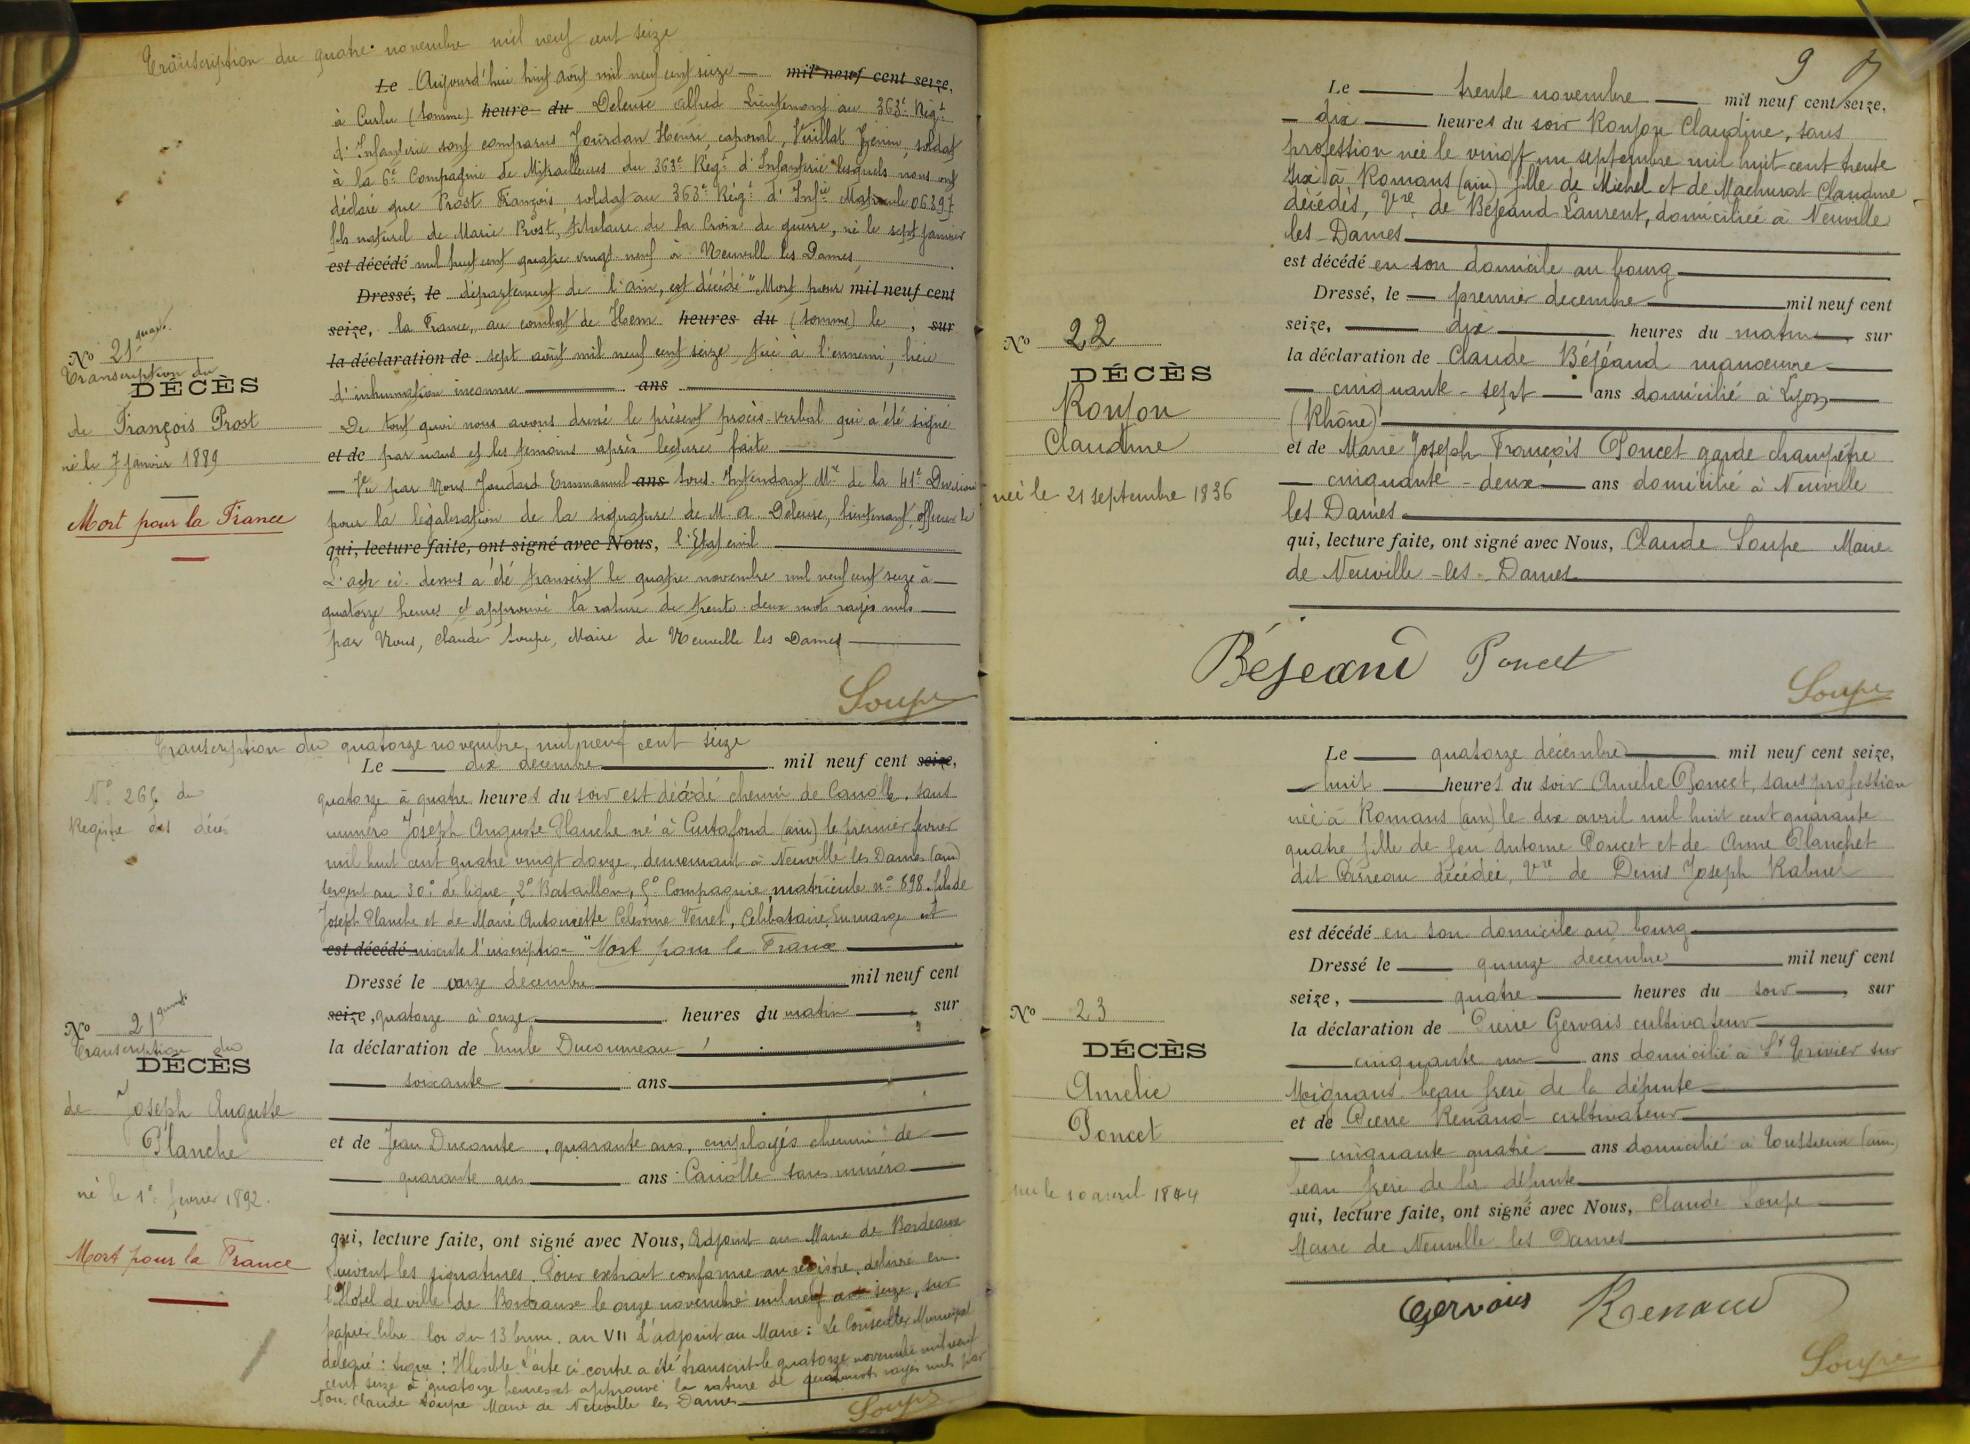 Transcription du quatre novembre mil neuf cent seize
Le Aujourd'hui huit août mil neuf cent seize mil neuf cent seize,
à Curlu (Somme) heure du Deleuse Alfred Lieutenant au 363e Régt
d'Infanterie sont comparus Jourdan Henri, caporal, Vuillat Firmin, soldat
à la 6e Compagnie de Mitrailleuses du 363e Régt d'Infanterie lesquels nous ont
déclaré que Prost François, soldat au 363e Régt d'Infie Matricule 06397
fils naturel de Marie Prost, titulaire de la Croix de guerre, né le sept janvier
est décédé mil huit cent quatre vingt neuf à Neuville les Dames
Dressé, le département de l'Ain, est décédé "Mort pour mil neuf cent
seize, la France, au combat de Hem heures du (Somme) le , sur
la déclaration de sept août mil neuf cent seize, tué à l'ennemi, lieu
d'inhumation inconnu ans
De tout quoi nous avons dressé le présent procès-verbal qui a été signé
et de par nous et les témoins après lecture faite
Vu par Nous Jondard Emmanuel ans Sous-Intendant Mre de la 41e Division
pour la légalisation de la signature de M. A. Deleuse, lieutenant, officier de
qui, lecture faite, ont signé avec Nous, l'Etat civil
L'acte ci-dessus a été transcrit le quatre novembre mil neuf cent seize à
quatorze heures et approuvé la rature de trente-deux mots rayés nuls
par Nous, Claude Soupe, Maire de Neuville les Dames
Soupe
No 21 quart.
Transcription du
DÉCÈS
de François Prost
né le 7 janvier 1889
Mort pour la France
Transcription du quatorze novembre mil neuf cent seize
Le dix décembre mil neuf cent seize,
quatorze à quatre heures du soir est décédé chemin de Canolle, sans
numéro Joseph Auguste Planche né à Curtafond (ain) le premier février
mil huit cent quatre vingt douze, demeurant à Neuville les Dames (ain)
sergent au 30e de ligne, 2e Bataillon, 5e Compagnie, matricule no 898. fils de
Joseph Planche et de Marie Antoinette Celestine Venet, Célibataire. En marge est
est décédé inscrite l'inscription "Mort pour la France
Dressé le onze décembre mil neuf cent
seize, quatorze à onze heures du matin, sur
la déclaration de Emile Ducourneau,
soixante ans
et de Jean Ducomte, quarante ans, employés chemin de
quarante ans ans Canolle sans numéro
qui, lecture faite, ont signé avec Nous, Adjoint au Maire de Bordeaux
Suivent les signatures. Pour extrait conforme au registre, délivré en
l'Hôtel de ville de Bordeaux le onze novembre mil neuf cent seize, sur
papier libre loi du 13 brum. an VII l'adjoint au Maire : Le Conseiller Municipal
délégué : Signé : Illisible. L'acte ci-contre a été transcrit le quatorze novembre mil neuf
cent seize à quatorze heures et approuvé la rature de quatre mots rayés nuls par
Nous Claude Soupe Maire de Neuville les Dames
Soupe
No 265 du
Registre des décès
No 21 quint.
Transcription du
DÉCÈS
de Joseph Auguste
Planche
né le 1er février 1892.
Mort pour la France
9
Le trente novembre mil neuf cent seize,
dix heures du soir Roujon Claudine, sans
profession née le vingt un septembre mil huit cent trente
six à Romans (ain) fille de Michel et de Machurat Claudine
décédés, Vve de Béjeand Laurent, domiciliée à Neuville
les-Dames
est décédé en son domicile au bourg
Dressé, le premier décembre mil neuf cent
seize, dix heures du matin sur
la déclaration de Claude Béjéand manoeuvre
cinquante-sept ans domicilié à Lyon
(Rhône)
et de Marie Joseph François Poncet garde champêtre
cinquante-deux ans domicilié à Neuville
les Dames
qui, lecture faite, ont signé avec Nous, Claude Soupe Maire
de Neuville-les-Dames
Béjeand Poncet
Soupe
No 22
DÉCÈS
Roujon
Claudine
née le 21 septembre 1836
Le quatorze décembre mil neuf cent seize,
huit heures du soir Amélie Poncet, sans profession
née à Romans (ain) le dix avril mil huit cent quarante
quatre fille de feu Antoine Poncet et de Anne Planchet
dit Carreau décédée, Vve de Denis Joseph Rabuel
est décédé en son domicile au bourg
Dressé le quinze décembre mil neuf cent
seize, quatre heures du soir, sur
la déclaration de Pierre Gervais cultivateur
cinquante un ans domicilié à St Trivier sur
Moignans beau frère de la défunte
et de Pierre Renaud cultivateur
cinquante quatre ans domicilié à Toussieux (ain)
beau frère de la défunte
qui, lecture faite, ont signé avec Nous, Claude Soupe
Maire de Neuville les Dames
Gervais Renaud
Soupe
No 23
DÉCÈS
Amélie
Poncet
née le 10 avril 1844